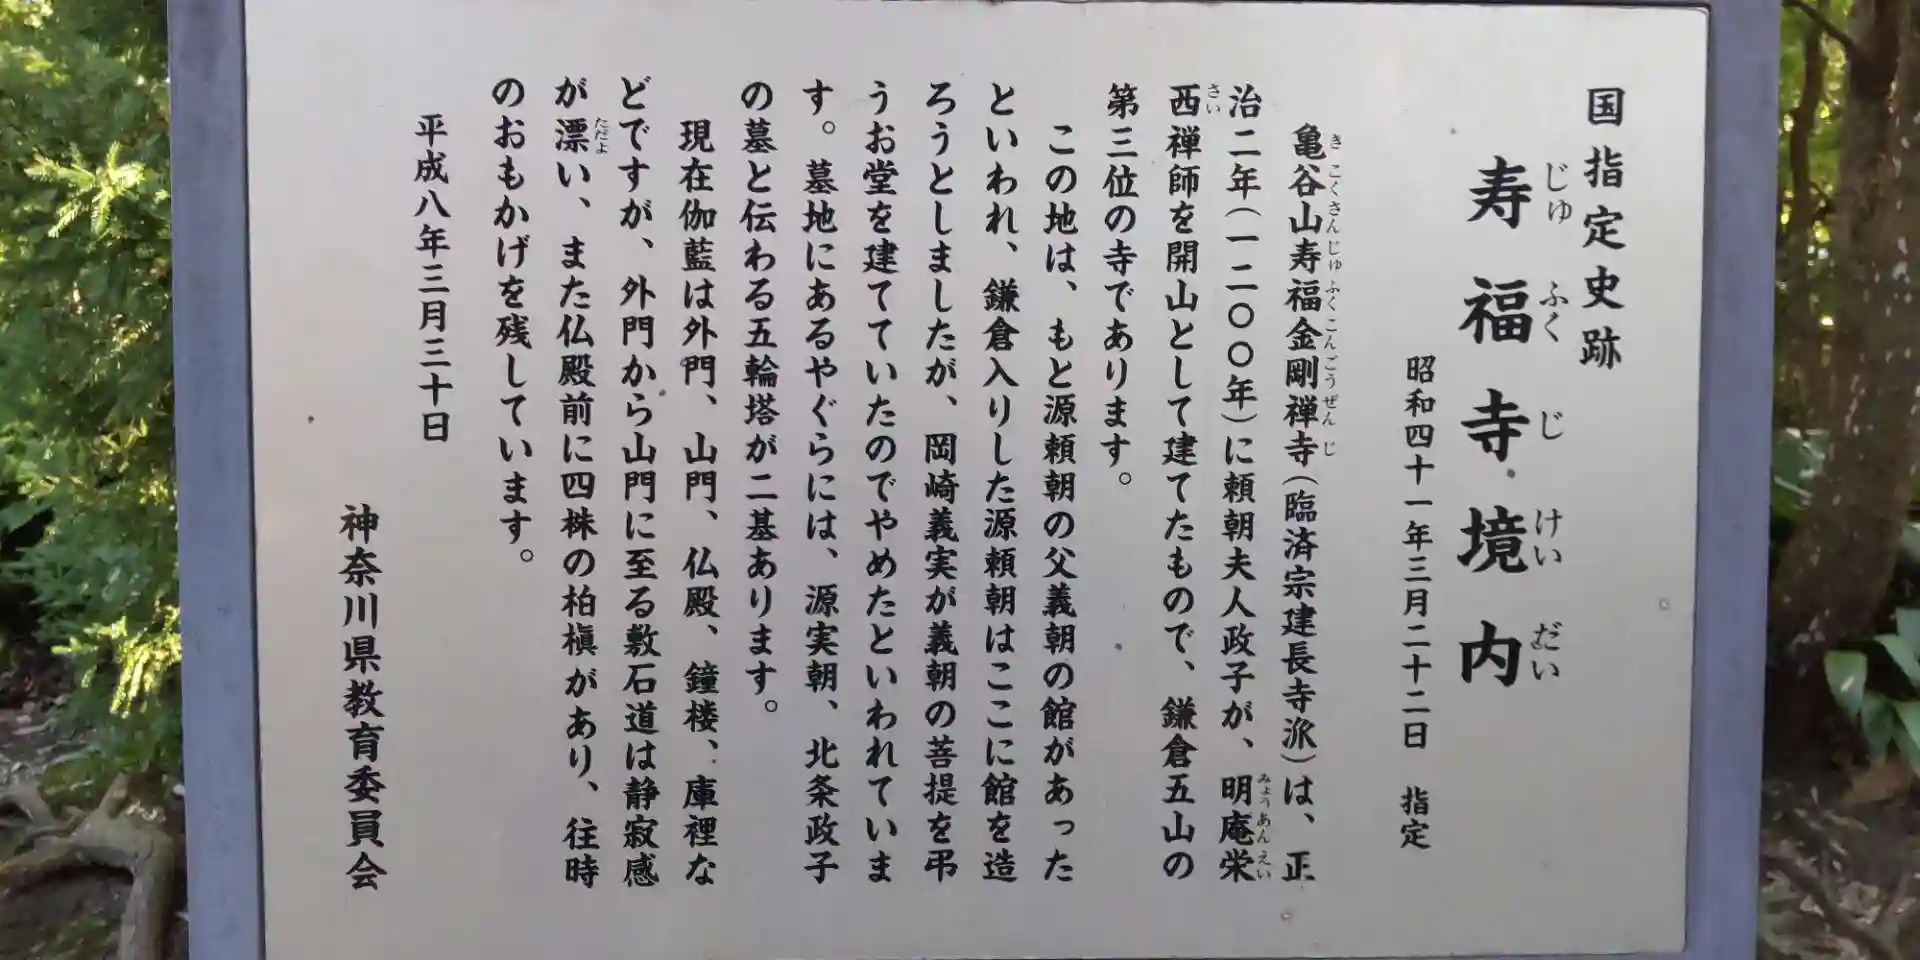 国指定史跡
寿福寺境内
じゅふくじけいだい
昭和四十一年三月二十二日 指定
亀谷山寿福金剛禅寺(臨済宗建長寺派)は、正
きこくさんじゅふくこんごうぜんじ
治二年(一二〇〇年)に頼朝夫人政子が、明庵栄
みょうあんえい
西禅師を開山として建てたもので、鎌倉五山の
さい
第三位の寺であります。
この地は、もと源頼朝の父義朝の館があった
といわれ、鎌倉入りした源頼朝はここに館を造
ろうとしましたが、岡崎義実が義朝の菩提を弔
うお堂を建てていたのでやめたといわれていま
す。墓地にあるやぐらには、源実朝、北条政子
の墓と伝わる五輪塔が二基あります。
現在伽藍は外門、山門、仏殿、鐘楼、庫裡な
どですが、外門から山門に至る敷石道は静寂感
が漂い、また仏殿前に四株の柏槇があり、往時
ただよ
のおもかげを残しています。
平成八年三月三十日
神奈川県教育委員会